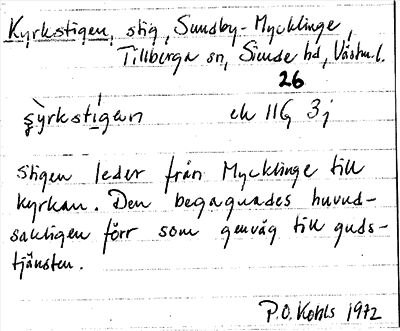 Kyrkstigen, stig, Sundby-Mycklinge,
Tillberga sn, Siende hd, Västm.l.
26
ek 11G 3j
stigen leder från Mycklinge till
kyrkan. Den begagnades huvud-
sakligen förr som genväg till guds-
tjänsten.
P.O. Kohls 1972